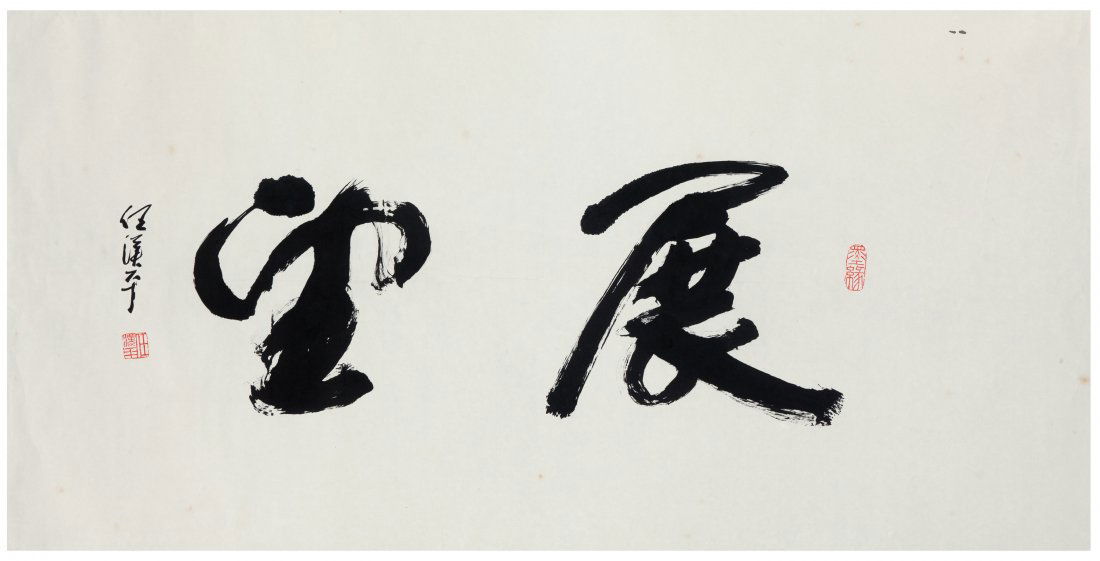 展望
任漢平